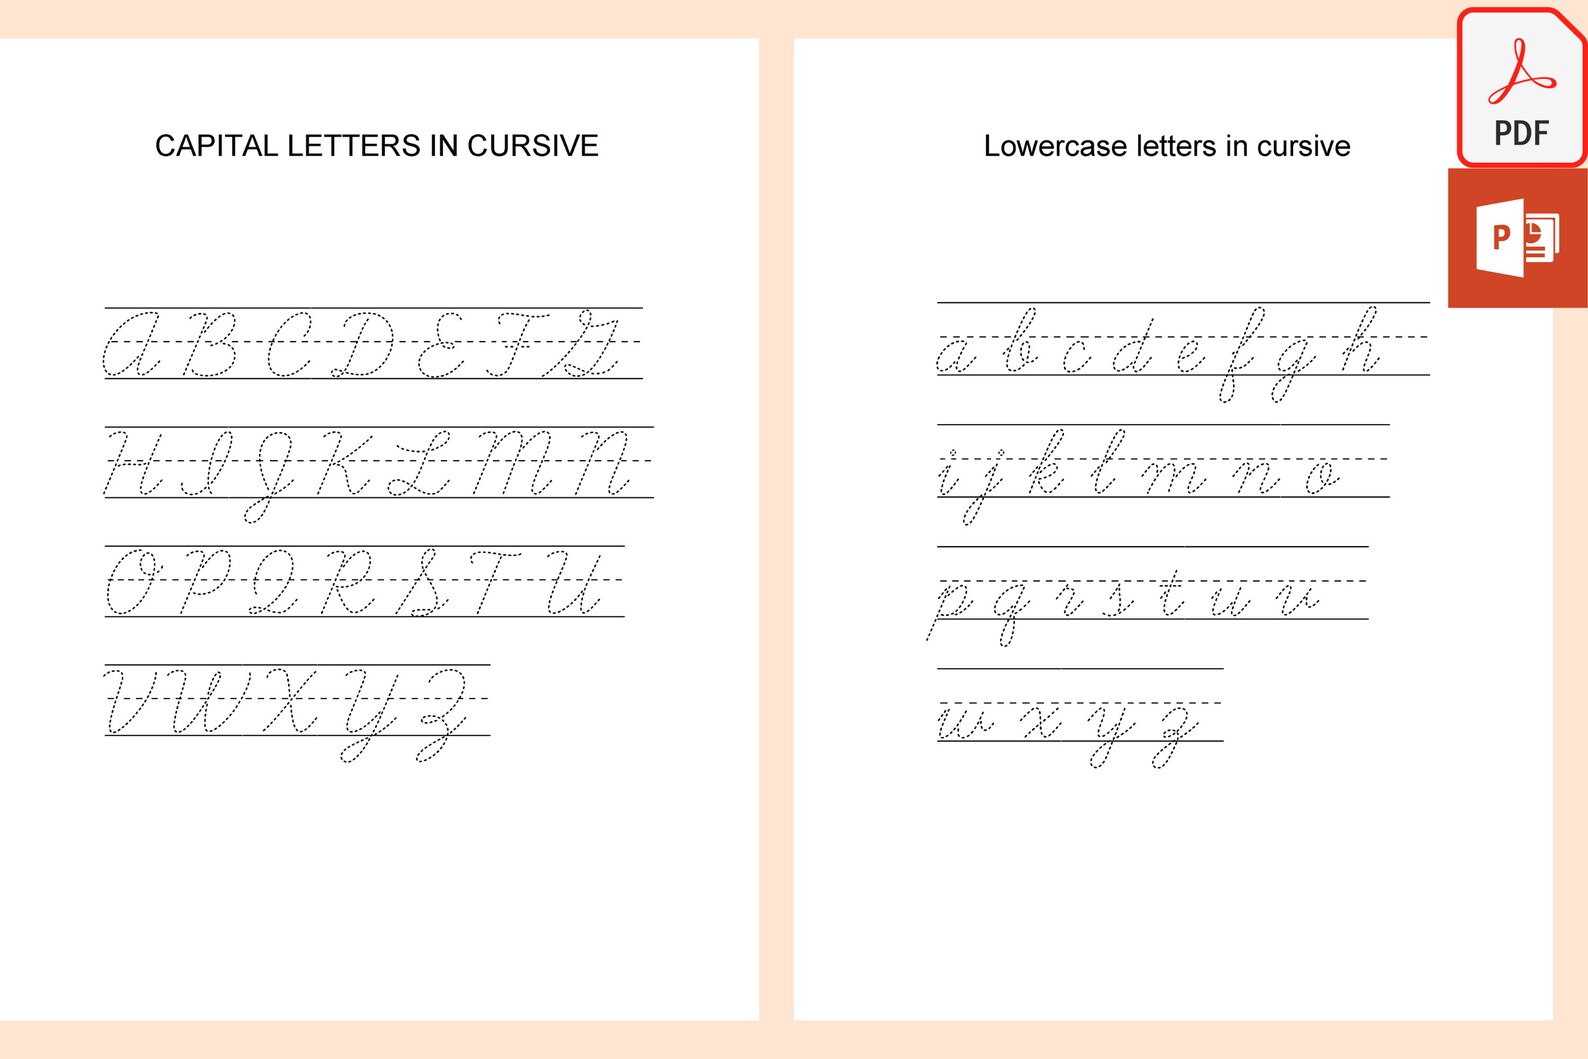 CAPITAL LETTERS IN CURSIVE
A B C D E F G
H I J K L M N
O P Q R S T U
V W X Y Z
Lowercase letters in cursive
a b c d e f g h
i j k l m n o
p q r s t u v
w x y z
PDF
P